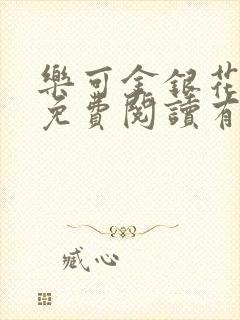 樂可金銀花
免費閱讀有
臧心